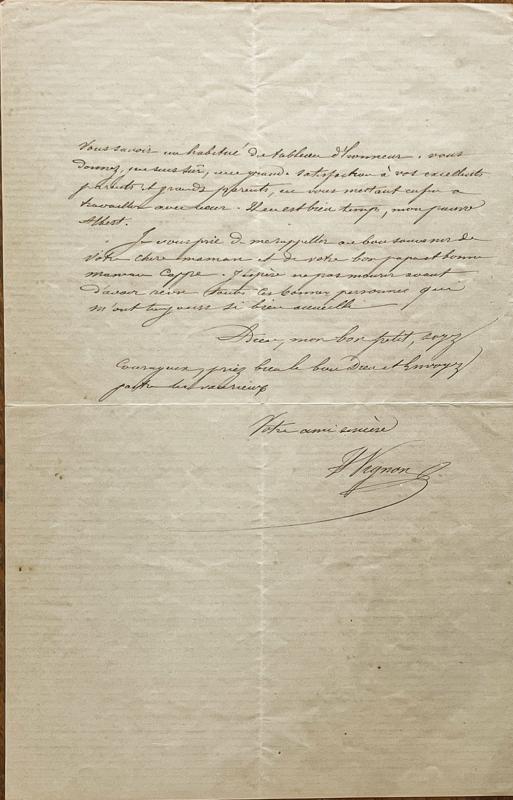 Vous savoir un habitué du tableau d'honneur. vous
donnez, j'en suis sûr, une grande satisfaction à vos excellents
parents et grands parents, en vous mettant enfin à
travailler avec cœur. Il en est bien temps, mon pauvre
Albert.
Je vous prie de me rappeller au bon souvenir de
votre chère maman et de votre bon papa et bonne
maman Cappe. J'espère ne pas mourir avant
d'avoir revu toutes ces bonnes personnes qui
m'ont toujours si bien accueilli
Adieu, mon bon petit, soyez
courageux, priez bien le bon Dieu et Envoyez
paître les vauriens
Votre ami sincère
Vignon